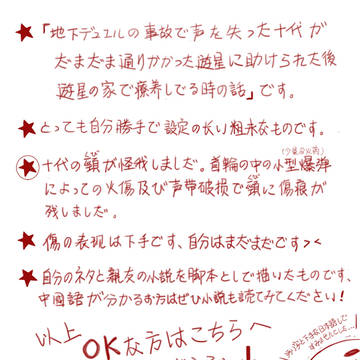 ★「地下デュエルの事故で声を失った十代が
たまたま通りかかった遊星に助けられた後
遊星の家で療養してる時の話」です。
★とっても自分勝手で設定の長い粗末なものです。
★十代の頸が怪我しました。首輪の中の小型爆弾
くび
(少量の火薬)
によっての火傷及び声帯破損で頸に傷痕が
くび
残しました。
★傷の表現は下手です、自分はまだまだです><
★自分のネタと親友の小説を脚本として描いたものです、
中国語が分かるお方はぜひ小説も読てみてください!
以上
OKな方はこちらへ